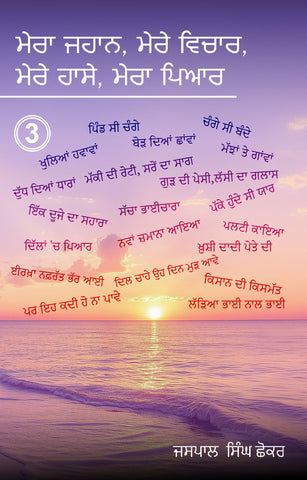 ਮੇਰਾ ਜਹਾਨ, ਮੇਰੇ ਵਿਚਾਰ,
ਮੇਰੇ ਹਾਸੇ, ਮੇਰਾ ਪਿਆਰ
3
ਪਿੰਡ ਸੀ ਚੰਗੇ
ਚੰਗੇ ਸੀ ਬੰਦੇ
ਖੁਲਿਆਂ ਹਵਾਵਾਂ
ਬੋੜ ਦਿਆਂ ਛਾਂਵਾਂ
ਮੱਝਾਂ ਤੇ ਗਾਂਵਾਂ
ਦੁੱਧ ਦਿਆਂ ਧਾਰਾਂ
ਮੱਕੀ ਦੀ ਰੋਟੀ, ਸਰੋਂ ਦਾ ਸਾਗ
ਗੁੜ ਦੀ ਪੇਸੀ,ਲੱਸੀ ਦਾ ਗਲਾਸ
ਇੱਕ ਦੂਜੇ ਦਾ ਸਹਾਰਾ
ਸੱਚਾ ਭਾਈਚਾਰਾ
ਪੱਕੇ ਹੁੰਦੇ ਸੀ ਯਾਰ
ਦਿੱਲਾਂ 'ਚ ਪਿਆਰ
ਨਵਾਂ ਜ਼ਮਾਨਾ ਆਇਆ
ਪਲਟੀ ਕਾਇਆ
ਖ਼ੁਸ਼ੀ ਦਾਦੀ ਪੋਤੇ ਦੀ
ਈਰਖਾ ਨਫ਼ਰੱਤ ਭੱਰ ਆਈ
ਦਿਲ ਚਾਹੇ ਉਹ ਦਿਨ ਮੁੜ ਆਵੇ
ਕਿਸਾਨ ਦੀ ਕਿਸਮੱਤ
ਪਰ ਇਹ ਕਦੀ ਹੋ ਨਾ ਪਾਵੇ
ਲੱੜਿਆ ਭਾਈ ਨਾਲ ਭਾਈ
ਜਸਪਾਲ ਸਿੰਘ ਛੋਕਰ